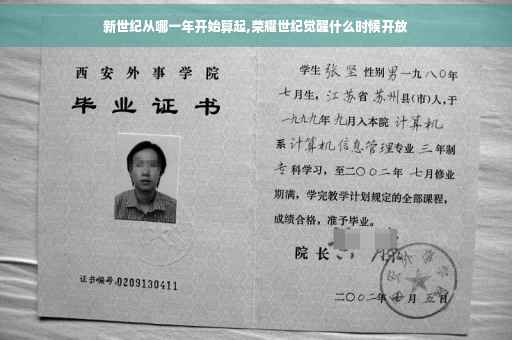 新世纪从哪一年开始算起,荣耀世纪觉醒什么时候开放
西安外事学院
毕业证书
证书编号:0209130411
学生 张坚 性别 男 一九八〇年
七月生，江苏省 苏州县(市)人,于
一九九九年 九月入本院 计算机
系 计算机信息管理专业 三 年制
专科学习，至二〇〇二年 七月修业
期满，学完教学计划规定的全部课程，
成绩合格，准予毕业。
院长
二〇〇二年 月 五日